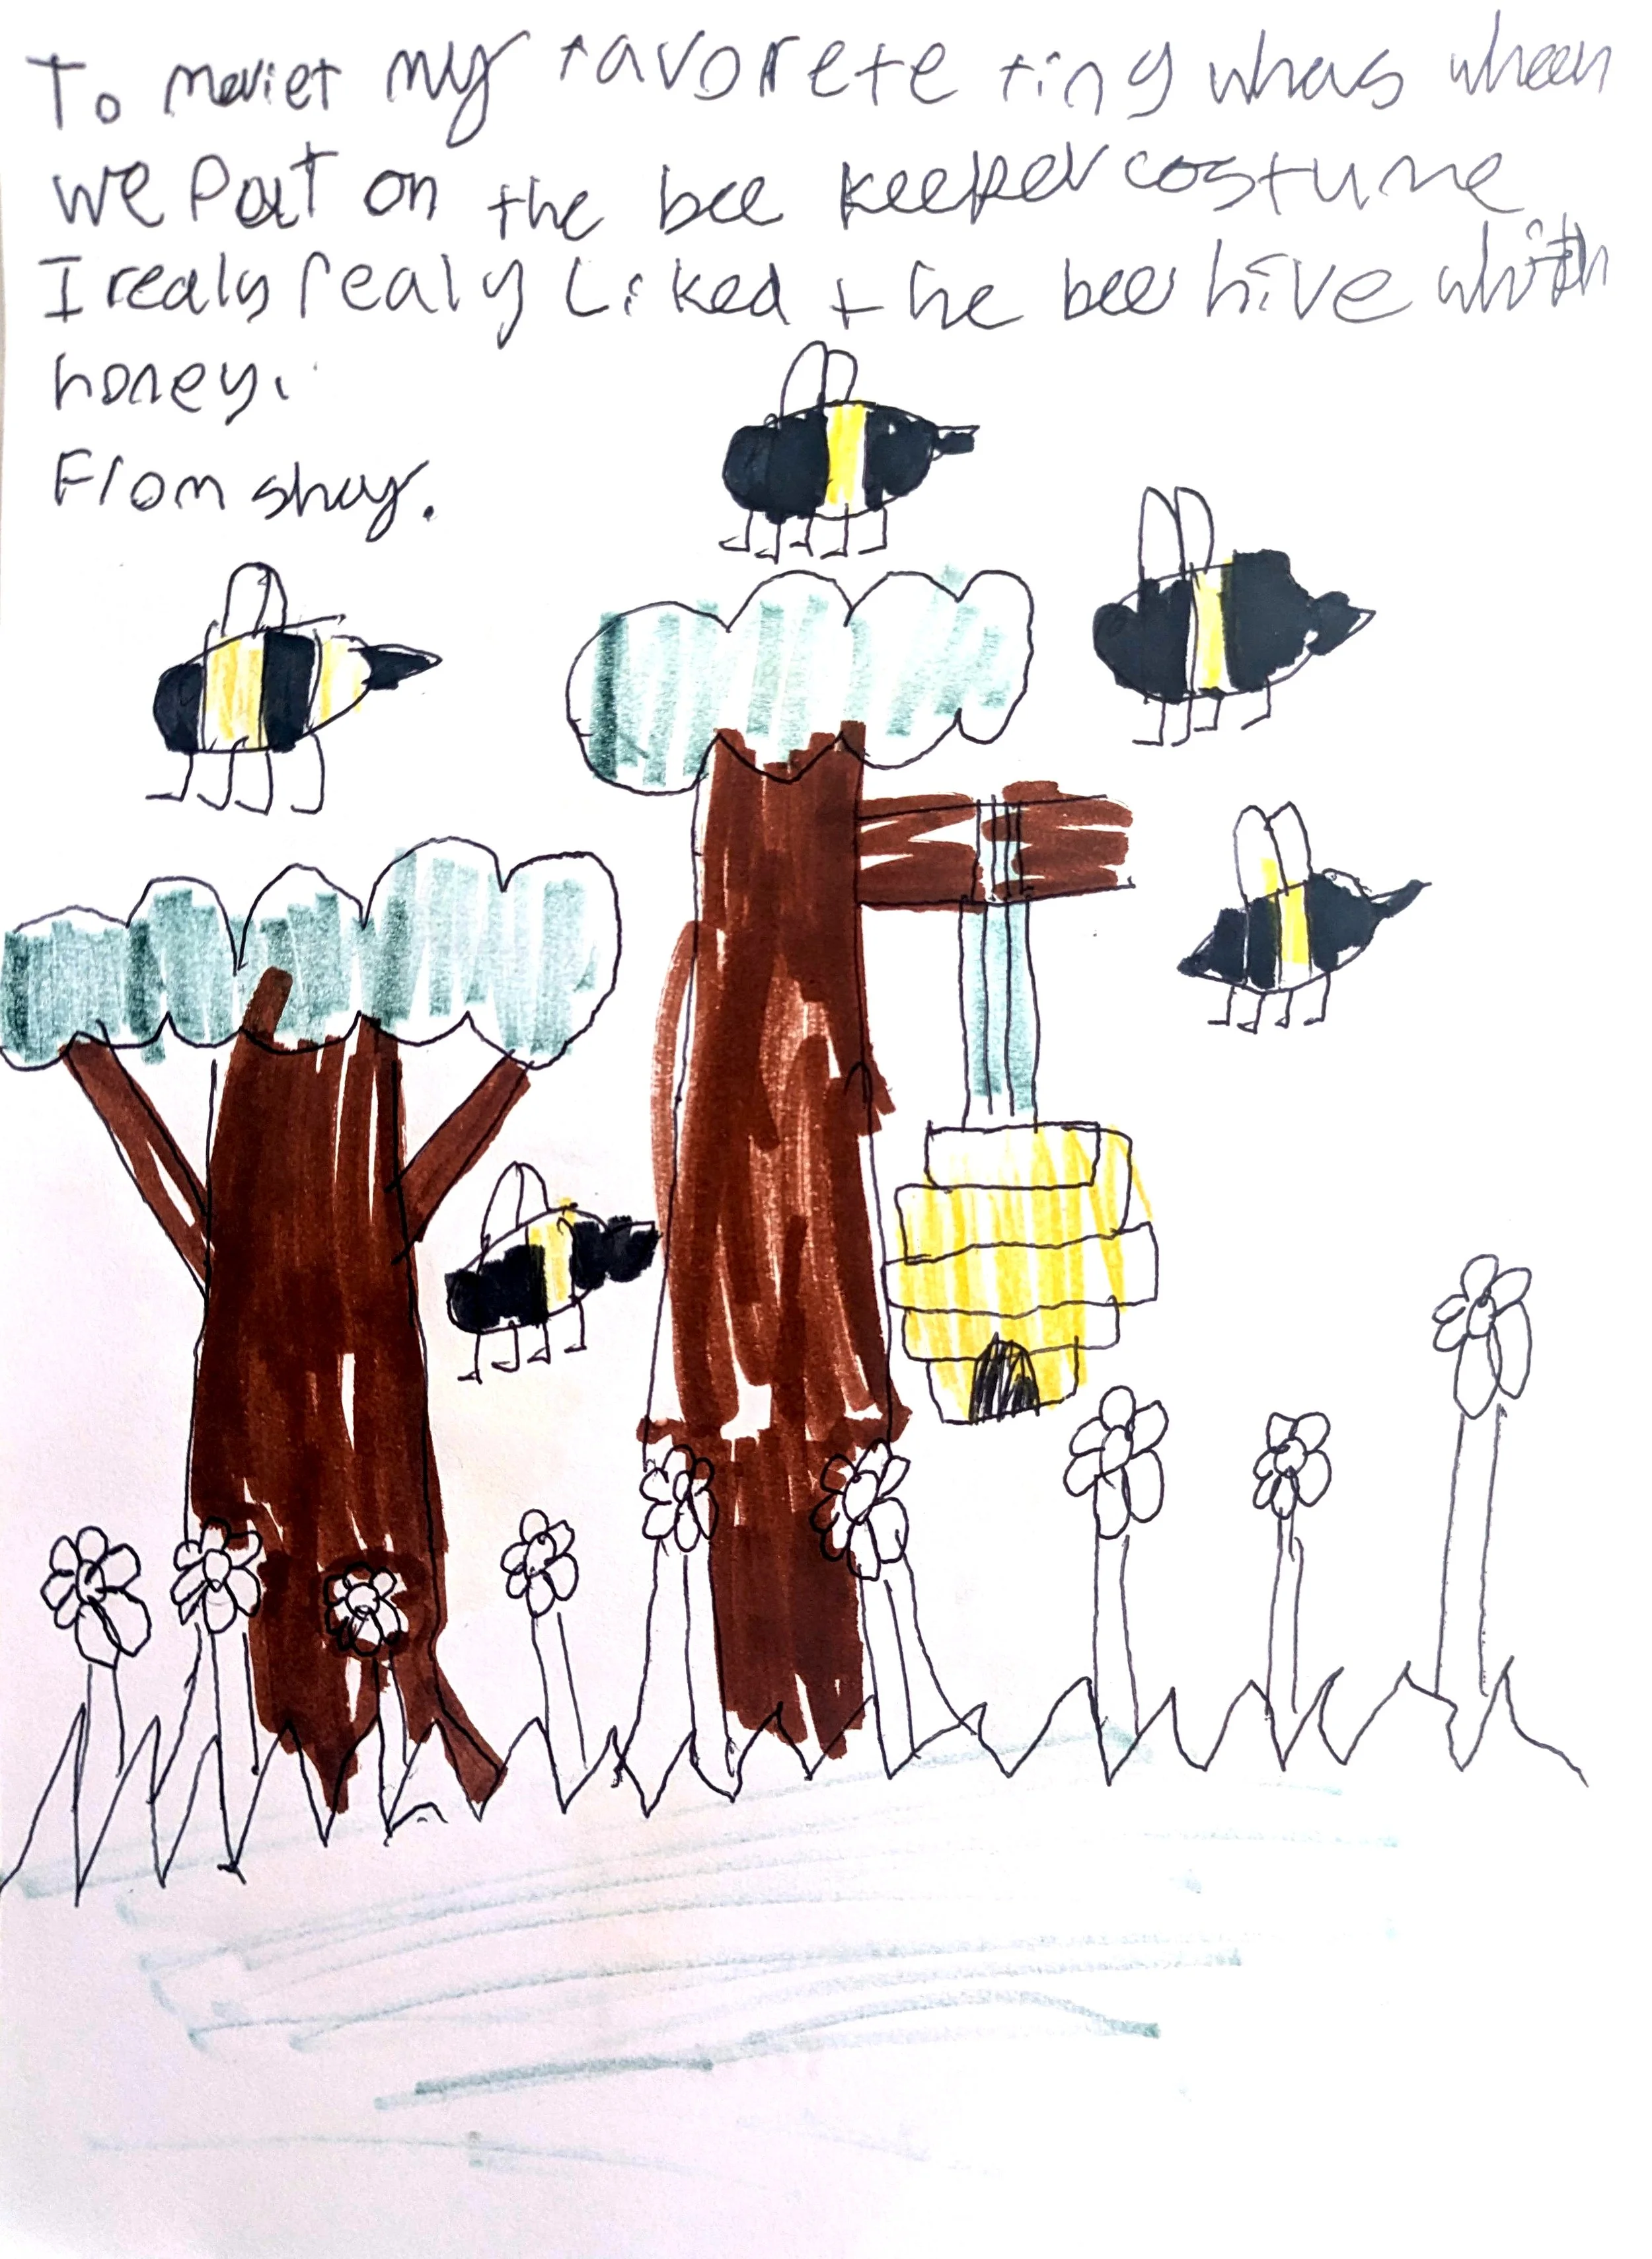 To meviet my favorete ting whas wheen
we Put on the bee keeper costume
I realy realy Liked the bee hive whith
honey.
From shay.